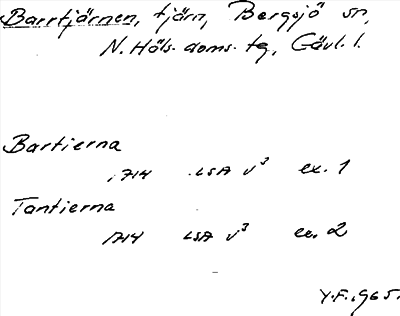 Barrtjärnen, tjärn, Bergsjö sn,
N. Häls. doms. tg, Gävl. l.
Bartierna
1714 LSA v³ ex. 1
Tantierna
1714 LSA v³ ex. 2
Y.F. 1965.